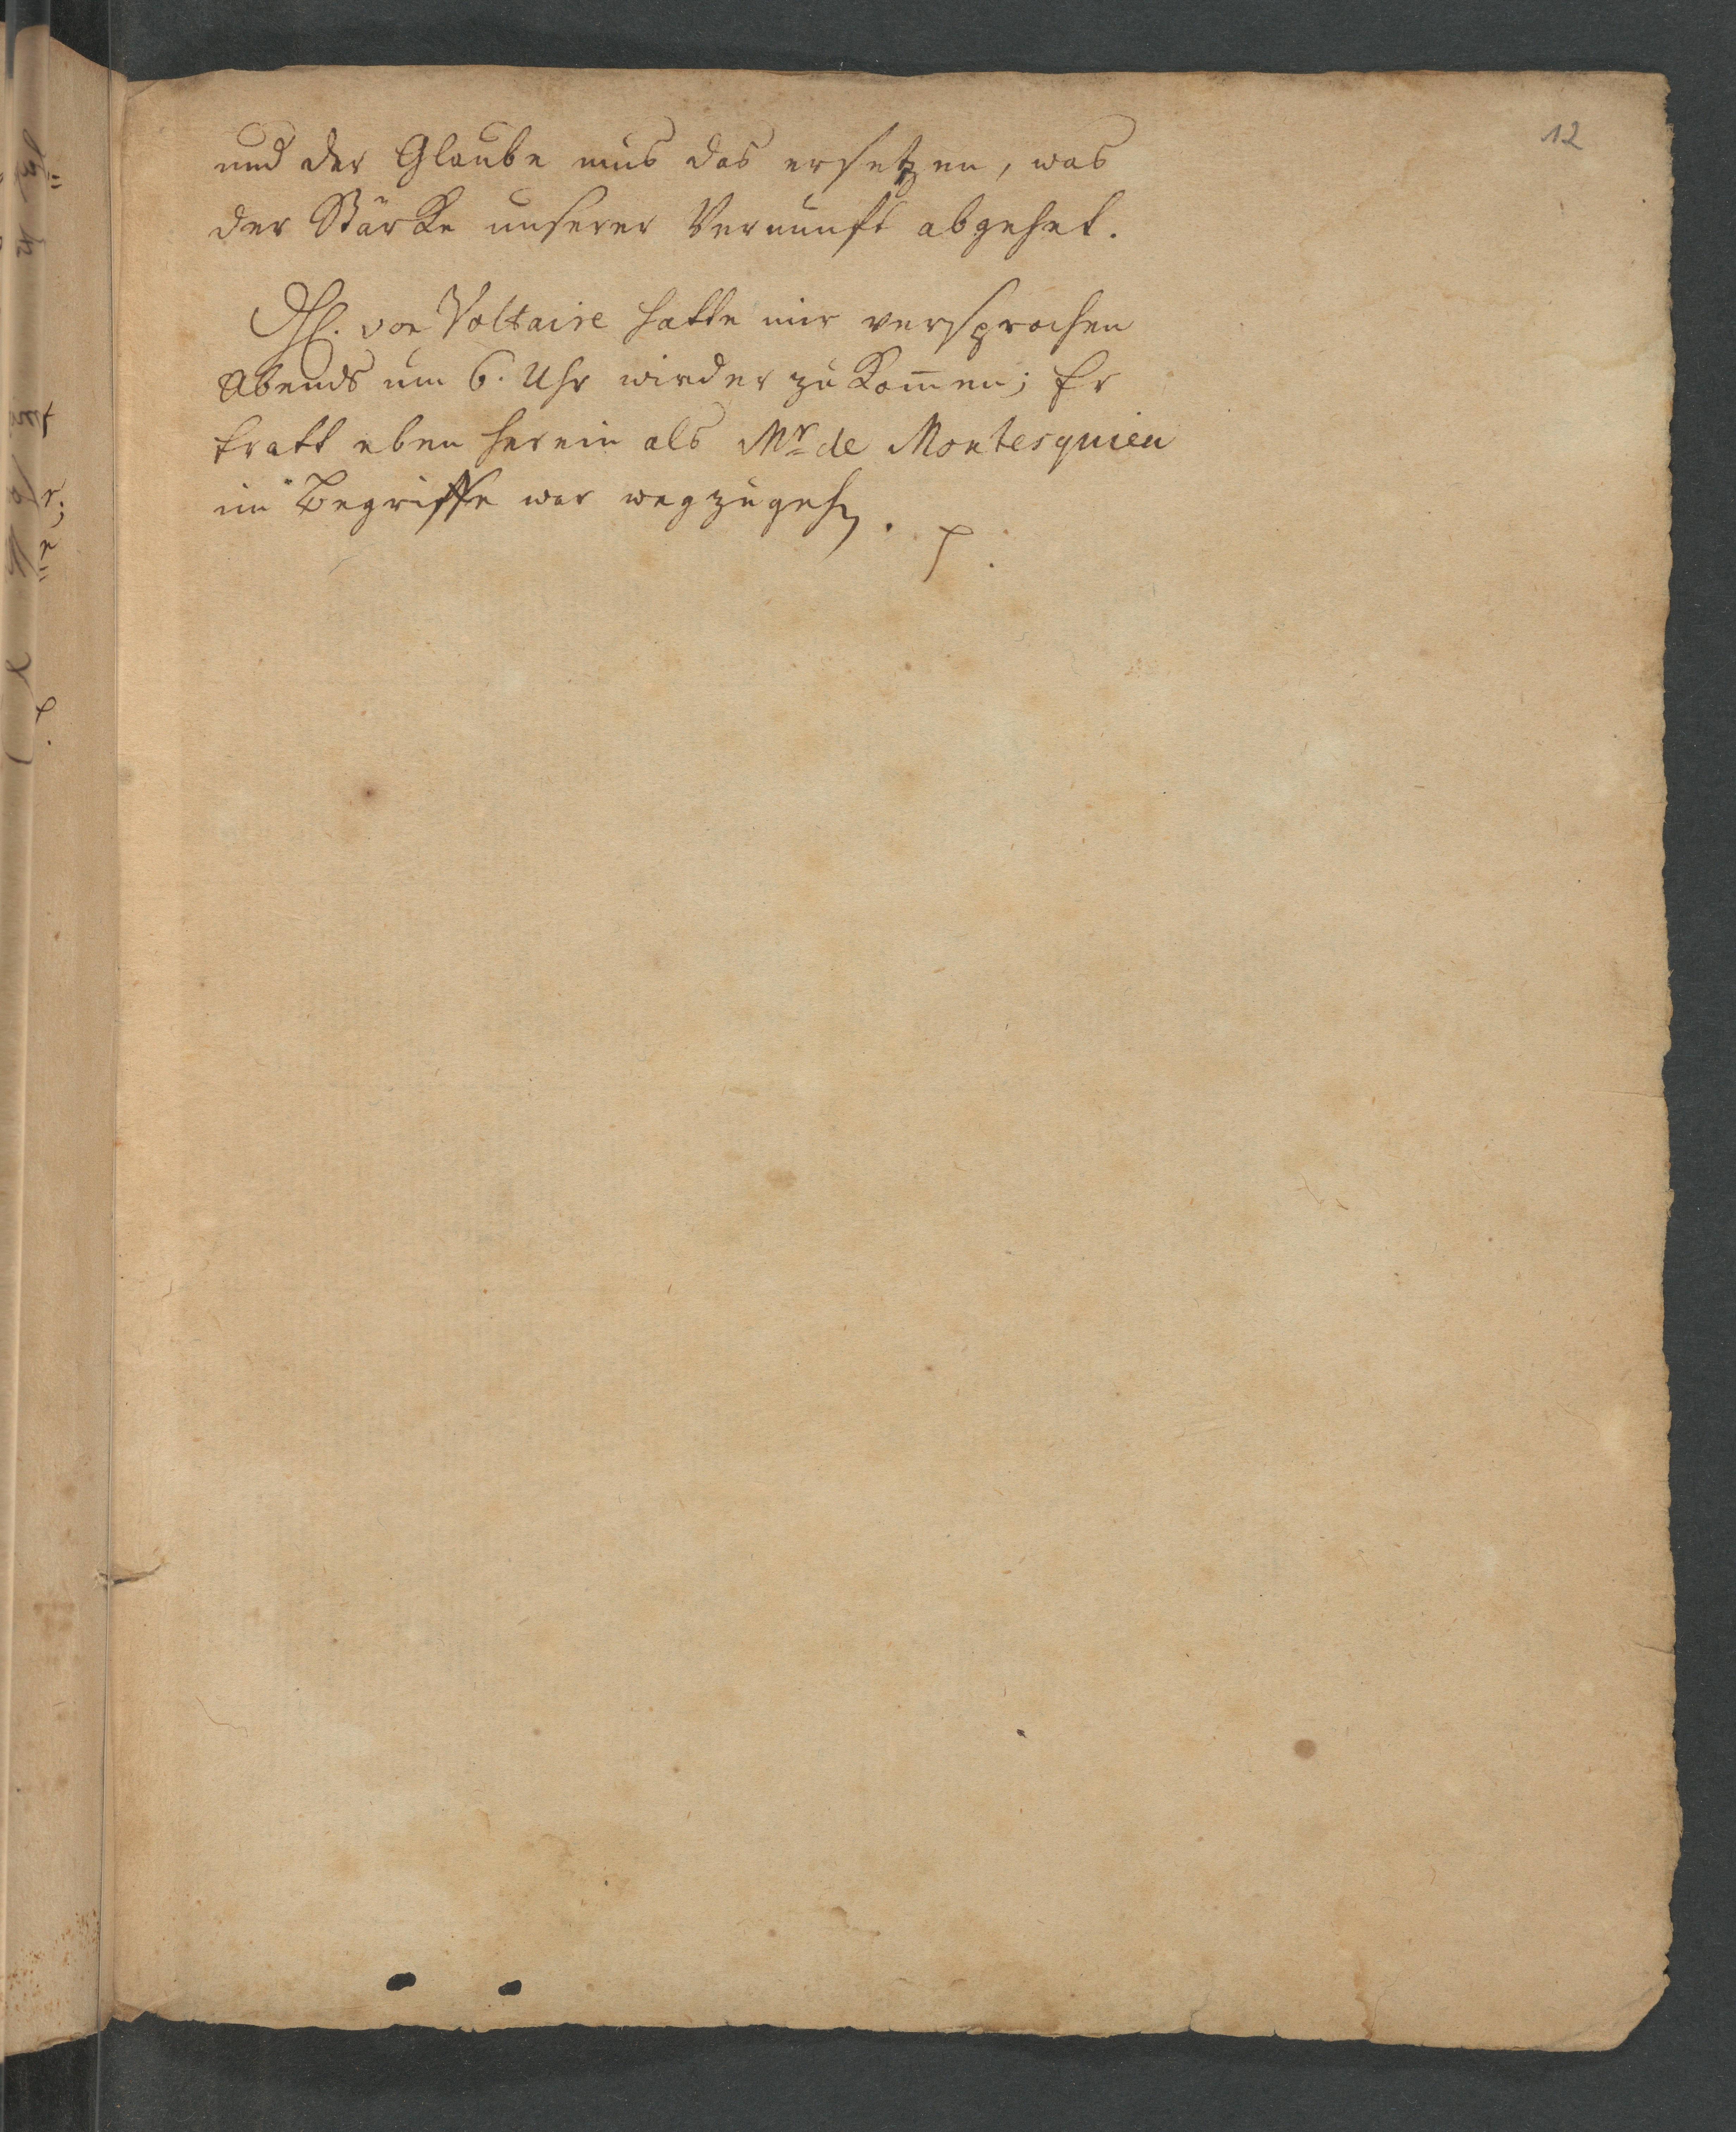 12
und der Glaube mus das ersetzen, was
der Stärke unserer Vernunft abgehet.
H. von Voltaire hatte mir versprochen
Abends um 6. Uhr wieder zu kom̅en; Er
tratt eben herein als Mr. de Montesquieu
im Begriffe war wegzugehen. p.